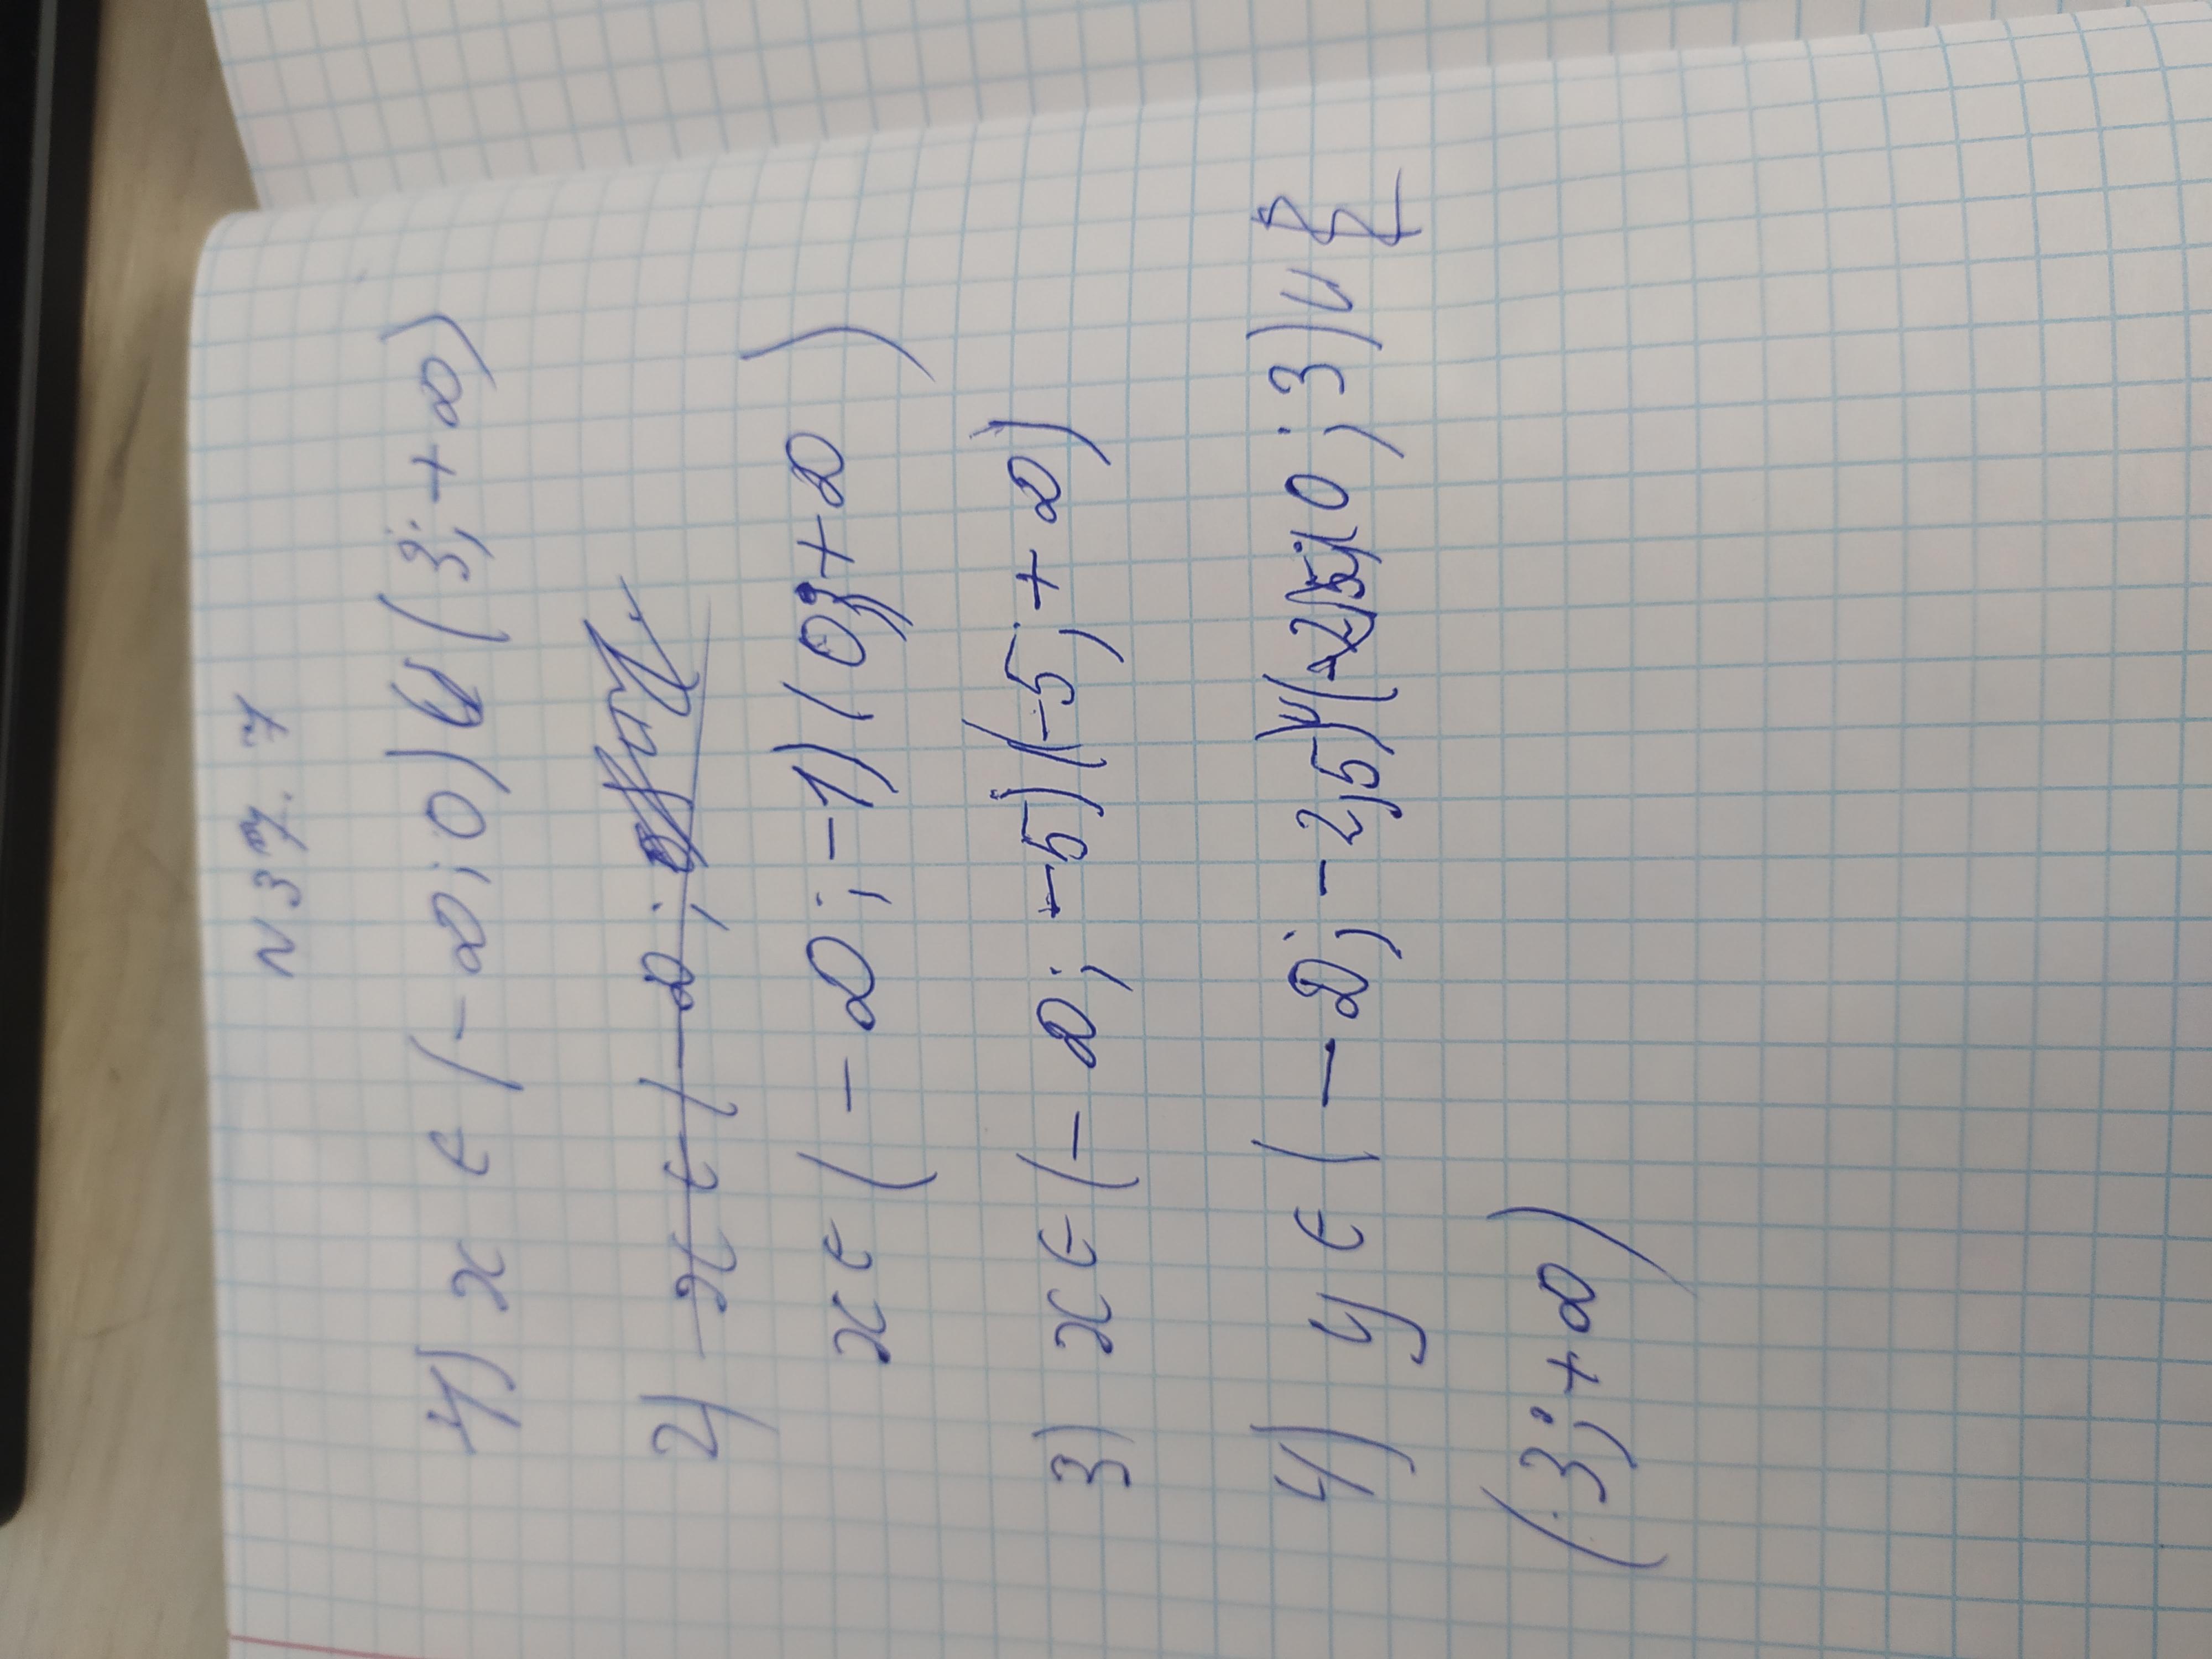 N 37.7
1) x ∈ (-∞; 0) ∪ (3; +∞)
2) x ∈ (-∞;
x ∈ (-∞; -1) (0; +∞)
3) x ∈ (-∞; -5) (-5; +∞)
4) y ∈ (-∞; -2,5) (0; 3) ∪
(3; +∞)